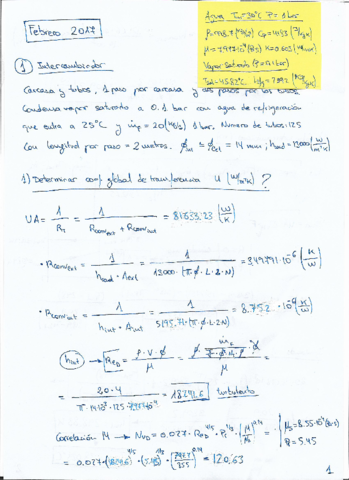 Febrero 2017
Agua T∞=30°C P=1bar
Cp=4153 (J/kgK)
Vapor Saturado (P=0.1bar)
Tsat=45.82°C
1 Intercambiador
Carcasa y tubos, 1 paso por carcasa y dos pasos por los tubos
Condensa vapor saturado a 0.1 bar con agua de refrigeración
que entra a 25°C y ṁp=20(kg/s) 1bar. Numero de tubos:125
Con longitud por paso = 2 metros. ϕint ≃ ϕext = 14 mm; hcond=13000(W/m²K)
1) Determinar coef. global de transferencia U (W/m²K) ?
UA = 1/RT = 1/(Rconvext + Rconvint) = 81.033.23 (W/K)
• Rconvext = 1/(hcond · Aext) = 1/(13000·(π·ϕ·L·2N)) = 3'49791·10⁻⁶ (K/W)
• Rconvint = 1/(hint · Aint) = 1/(5195.71·(π·ϕ·L·2N)) = 8.752·10⁻⁶ (K/W)
hint → ReD = ρ·V·ϕ/μ =
= 20·4 = 18241.6 turbulento
Correlación → NuD = 0.027·ReD^4/5·Pr^1/3·(μ/μs)^0.14 =
μs=8.55·10⁻⁴
Pr=5.45
= 120.63
1